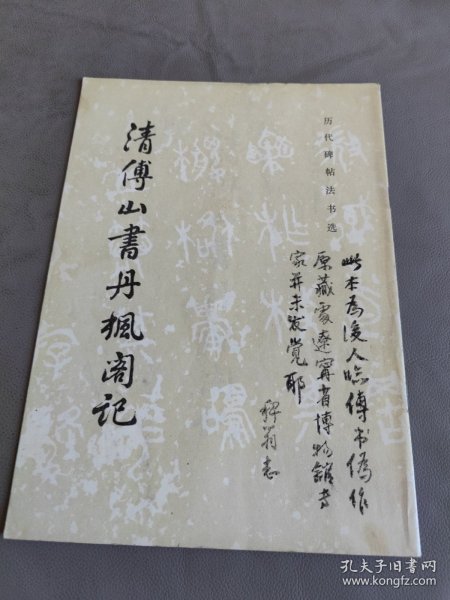 清傅山書丹楓阁记
历代碑帖法书选
此本為後人臨傅书偽作
原藏處遼寧省博物館专
家并未发覺耶
翁志
孔夫子旧书网
www.kongfz.com